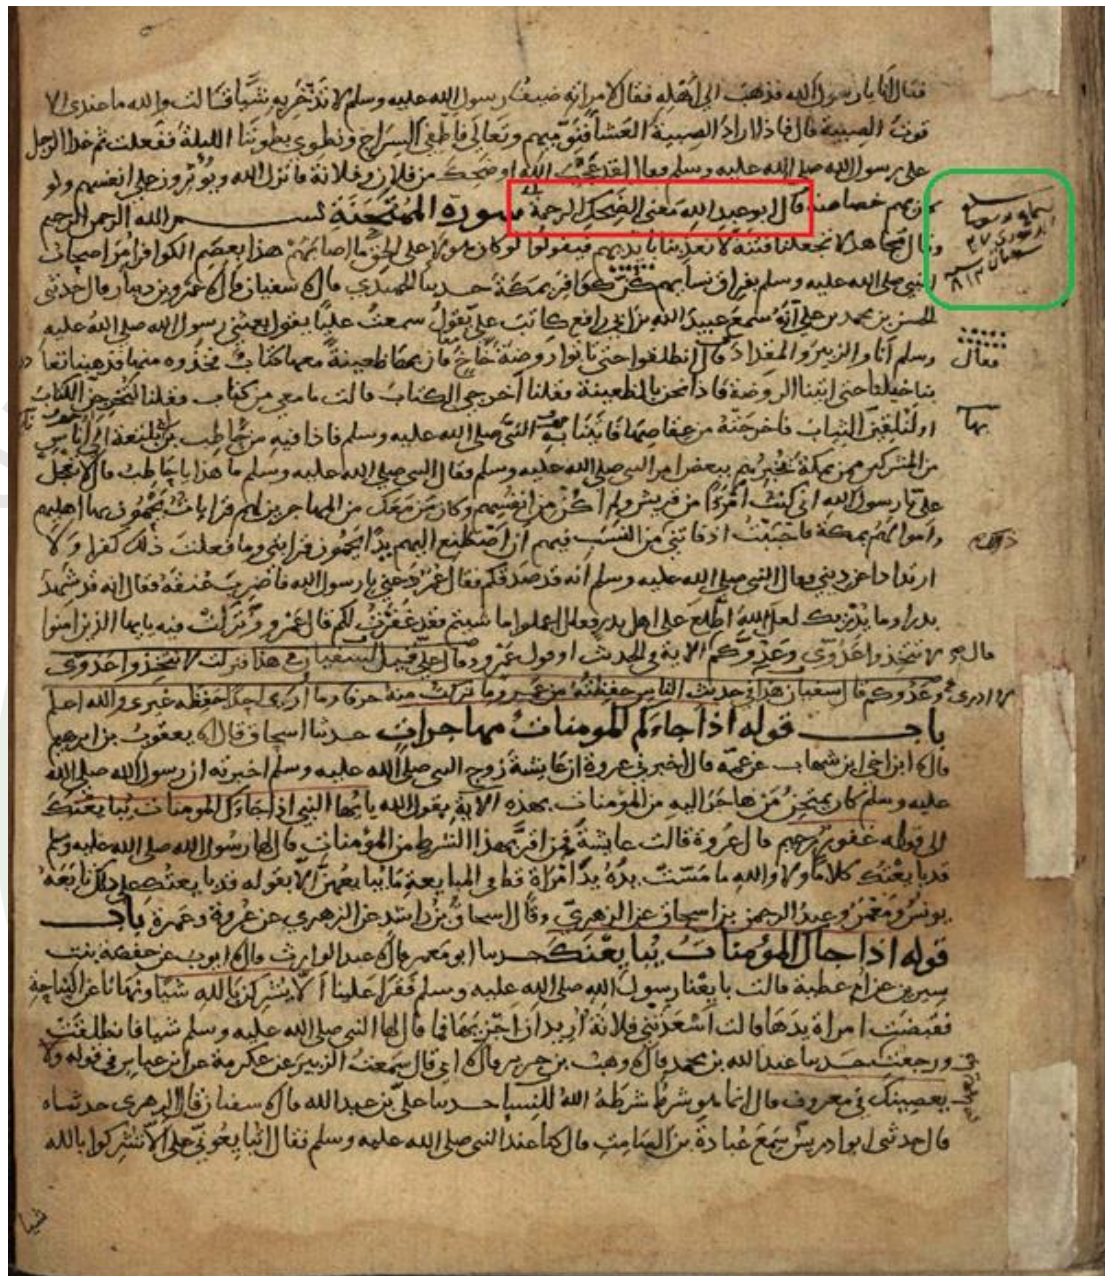 فقال انا يا رسول الله فذهب الى اهله فقال لامراته ضيف رسول الله صلى الله عليه وسلم لا تدخريه شيا قالت والله ما عندى الا
قوت الصبية قال فاذا اراد الصبية العشا فنوميهم وتعالى فاطفى السراج ونطوى بطوننا الليلة ففعلت ثم غدا الرجل
على رسول الله صلى الله عليه وسلم فقال لقد عجب الله او ضحك من فلان وفلانة فانزل الله ويوثرون على انفسهم ولو
كان بهم خصاصة قال ابو عبد الله معنى الضحك الرحمة سورة الممتحنة بسم الله الرحمن الرحيم
وقال مجاهد لا تجعلنا فتنة لا تعذبنا بايديهم فيقولوا لو كان هولا على الحق ما اصابهم هذا بعصم الكوافر امر اصحاب
النبى صلى الله عليه وسلم بفراق نسايهم كن كوافر بمكة حدثنا الحميدي قال سفيان قال عمرو بن دينار قال حدثنى
الحسن بن محمد بن على انه سمع عبيد الله بن ابى رافع كاتب على يقول سمعت عليا يقول بعثنى رسول الله صلى الله عليه
وسلم انا والزبير والمقداد قال انطلقوا حتى تاتوا روضة خاخ فان بها ظعينة معها كتاب فخذوه منها فذهبنا تعادى
فقال
بنا خيلنا حتى اتينا الروضة فاذا نحن بالظعينة فقلنا اخرجى الكتاب قالت ما معى من كتاب فقلنا لتخرجن الكتاب
او لنلقين الثياب فاخرجته من عقاصها فاتينا به النبى صلى الله عليه وسلم فاذا فيه من حاطب بن ابى بلتعة الى اناس
من المشركين ممن بمكة يخبرهم ببعض امر النبى صلى الله عليه وسلم فقال النبى صلى الله عليه وسلم ما هذا يا حاطب قال لا تعجل
على يا رسول الله انى كنت امرءا من قريش ولم اكن من انفسهم وكان من معك من المهاجرين لهم قرابات يحمون بها اهليهم
واموالهم بمكة فاحببت اذ فاتنى من النسب فيهم ان اصطنع اليهم يدا يحمون قرابتى وما فعلت ذلك كفرا ولا
ارتدادا عن دينى فقال النبى صلى الله عليه وسلم انه قد صدقكم فقال عمر دعنى يا رسول الله فاضرب عنقه فقال انه قد شهد
بدرا وما يدريك لعل الله اطلع على اهل بدر فقال اعملوا ما شيتم فقد غفرت لكم قال عمرو ونزلت فيه يايها الذين امنوا
لا تتخذوا عدوى وعدوكم الاية فى الحديث او قول عمرو قيل لسفيان فى هذا فنزلت لا تتخذوا عدوى
وعدوكم قال سفيان هذا فى حديث الناس حفظته من عمرو ما تركت منه حرفا وما ارى احدا حفظه غيرى والله اعلم
باب قوله اذا جاءكم المومنات مهاجرات حدثنا اسحاق قال يعقوب بن ابرهيم
قال ابن اخى ابن شهاب عن عمه قال اخبرنى عروة ان عايشة زوج النبى صلى الله عليه وسلم اخبرته ان رسول الله صلى الله
عليه وسلم كان يمتحن من هاجر اليه من المؤمنات بهذه الاية يقول الله يايها النبى اذا جاءك المومنات يبايعنك
الى قوله غفور رحيم قال عروة قالت عايشة فمن اقر بهذا الشرط من المؤمنات قال لها رسول الله صلى الله عليه وسلم
قد بايعتك كلاما ولا والله ما مست يده يد امراة قط فى المبايعة ما يبايعهن الا بقوله قد بايعتك على ذلك تابعه
يونس ومعمر وعبد الرحمن بن اسحاق عن الزهرى وقال اسحاق بن راشد عن الزهرى عن عروة وعمرة باب
قوله اذا جاك المؤمنات يبايعنك حدثنا ابو معمر قال عبد الوارث قال ايوب عن حفصة بنت
سيرين عن ام عطية قالت بايعنا رسول الله صلى الله عليه وسلم فقرا علينا الا يشركن بالله شيا ونهانا عن النياحة
فقبضت امراة يدها قالت اسعدتنى فلانة اريد ان اجزيها فما قال لها النبى صلى الله عليه وسلم شيا فانطلقت
ورجعت حدثنا عبد الله بن محمد قال وهب بن جرير قال ابى قال سمعت الزبير عن عكرمة عن ابن عباس فى قوله ولا
يعصينك فى معروف قال انما هو شرط شرطه الله للنسا حدثنا على بن عبد الله قال سفيان قال الزهرى حدثناه
قال حدثنى ابو ادريس سمع عبادة بن الصامت قال كنا عند النبى صلى الله عليه وسلم فقال اتبايعونى على الا تشركوا بالله
شيا